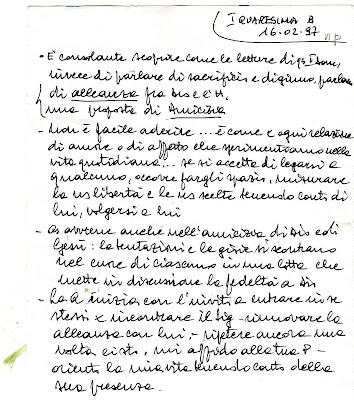 I QUARESIMA B
16.02.97 np
- È consolante scoprire come le letture di qs I Dom,
invece di parlare di sacrificio e digiuno, parlano
di alleanza fra Dio e l'H.
una proposta di Amicizia
- Non è facile aderire... è come x ogni relazione
di amore o di affetto che sperimentiamo nella
vita quotidiana... se si accetta di legarsi a
qualcuno, occorre fargli spazio, misurare
la ns libertà e le ns scelte tenendo conto di
lui, volgersi a lui
- così avviene anche nell'amicizia di Dio e di
Gesù: la tentazione e la si scontrano
nel cuore di ciascuno in una lotta che
mette in discussione la fedeltà a Dio
- La Q inizia con l'invito a entrare in se
stessi x incontrare il Sig - rinnovare la
alleanza con lui, - ripetere ancora una
volta: mi affido alla tua P -
oriento la mia vita tenendo conto della
sua presenza.